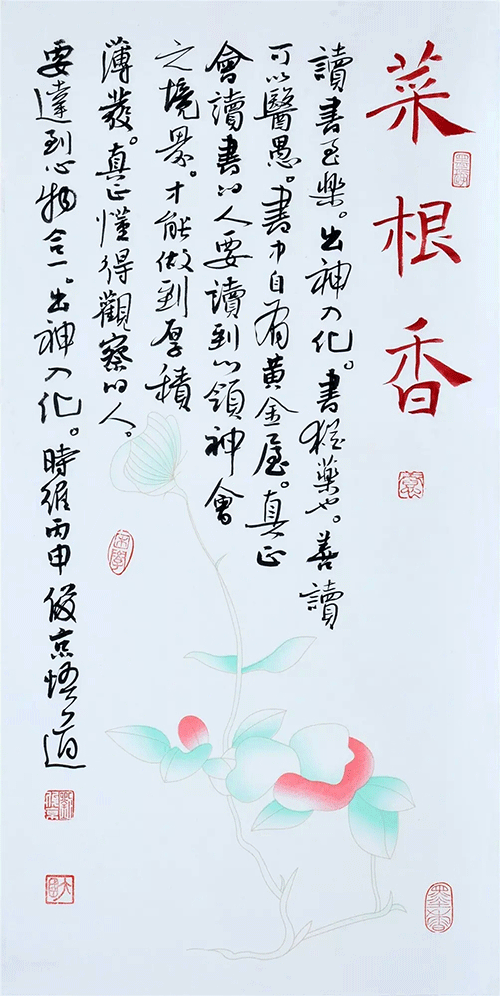 菜根香
讀書至樂。出神入化。書猶藥也。善讀
可以醫愚。書中自有黄金屋。真正
會讀書的人要讀到心領神會
之境界。才能做到厚積
薄發。真正懂得觀察的人。
要達到心物合一。出神入化。時維丙申 俊京悟道
墨香